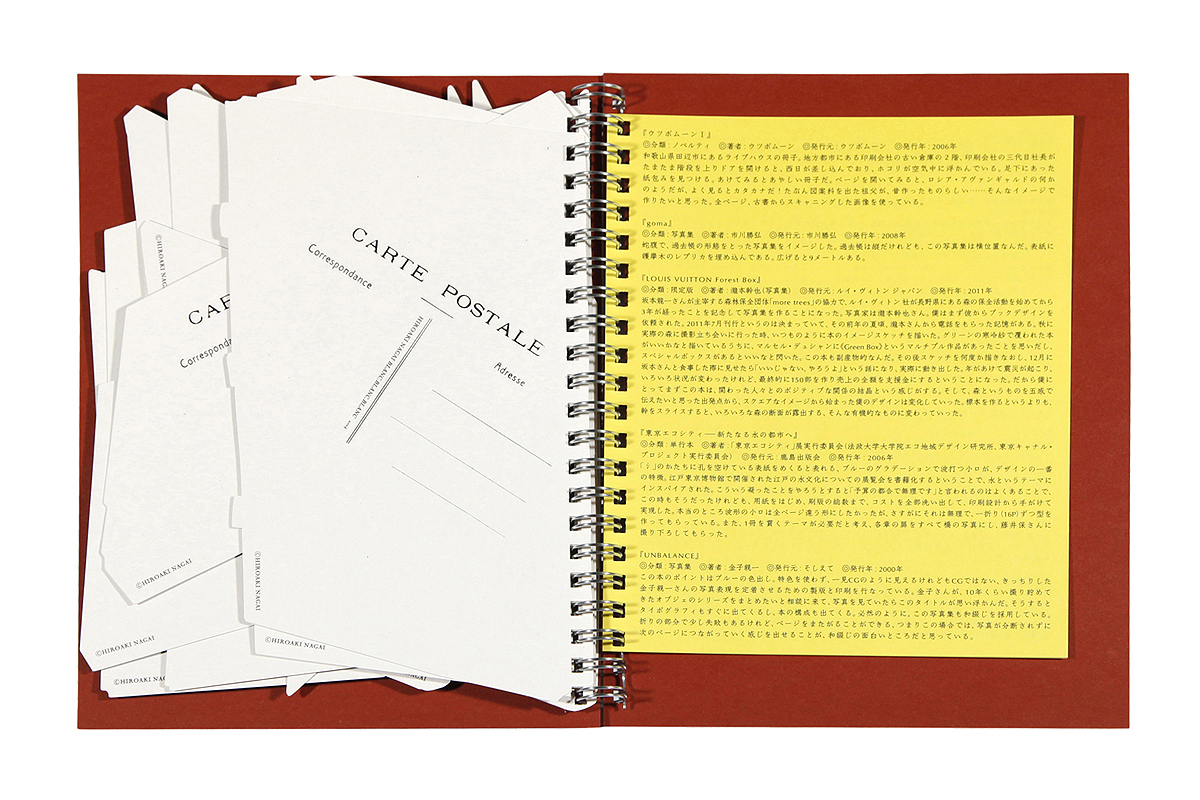 CARTE POSTALE
Correspondance
Adresse
HIROAKI NAGAI BLANC BLANC BLANC
©HIROAKI NAGAI
©HIROAKI NAGAI
©HIROAKI NAGAI
CA
Correspond
©HIROAKI NAGAI
©HIROAKI NAGAI
©HIROAKI NAG
『ウツボムーンⅠ』
◎分類：ノベルティ ◎著者：ウツボムーン ◎発行元：ウツボムーン ◎発行年：2006年
和歌山県田辺市にあるライブハウスの冊子。地方都市にある印刷会社の古い倉庫の2階、印刷会社の三代目社長が
たまたま階段を上りドアを開けると、西日が差し込んでおり、ホコリが空気中に浮かんでいる。足下にあった
紙包みを見つける。あけてみるとあやしい冊子だ。ページを開いてみると、ロシア・アヴァンギャルドの何か
のようだが、よく見るとカタカナだ！たぶん図案科を出た祖父が、昔作ったものらしい……そんなイメージで
作りたいと思った。全ページ、古書からスキャニングした画像を使っている。
『goma』
◎分類：写真集 ◎著者：市川勝弘 ◎発行元：市川勝弘 ◎発行年：2008年
蛇腹で、過去帳の形態をとった写真集をイメージした。過去帳は縦だけれども、この写真集は横位置なんだ。表紙に
護摩木のレプリカを埋め込んである。広げると9メートルある。
『LOUIS VUITTON Forest Box』
◎分類：限定版 ◎著者：瀧本幹也(写真集) ◎発行元：ルイ・ヴィトン ジャパン ◎発行年：2011年
坂本龍一さんが主宰する森林保全団体「more trees」の協力で、ルイ・ヴィトン社が長野県にある森の保全活動を始めてから
3年が経ったことを記念して写真集を作ることになった。写真家は瀧本幹也さん。僕はまず彼からブックデザインを
依頼された。2011年7月刊行というのは決まっていて、その前年の夏頃、瀧本さんから電話をもらった記憶がある。秋に
実際の森に撮影立ち会いに行った時、いつものように本のイメージスケッチを描いた。グリーンの寒冷紗で覆われた本
がいいかなと描いているうちに、マルセル・デュシャンに〈Green Box〉というマルチプル作品があったことを思いだし、
スペシャルボックスがあるといいなと閃いた。この本も副産物的なんだ。その後スケッチを何度か描きなおし、12月に
坂本さんと食事した際に見せたら「いいじゃない、やろうよ」という話になり、実際に動き出した。年があけて震災が起こり、
いろいろ状況が変わったけれど、最終的に150部を作り売上の全額を支援金にするということになった。だから僕に
とってまずこの本は、関わった人々とのポジティブな関係の結晶という感じがする。そして、森というものを五感で
伝えたいと思った出発点から、スクエアなイメージから始まった僕のデザインは変化していった。標本を作るというよりも、
幹をスライスすると、いろいろな森の断面が露出する、そんな有機的なものに変わっていった。
『東京エコシティ―新たなる水の都市へ』
◎分類：単行本 ◎著者：「東京エコシティ」展実行委員会(法政大学大学院エコ地域デザイン研究所、東京キャナル・
プロジェクト実行委員会) ◎発行元：鹿島出版会 ◎発行年：2006年
「氵」のかたちに孔を空けている表紙をめくると表れる、ブルーのグラデーションで波打つ小口が、デザインの一番
の特徴。江戸東京博物館で開催された江戸の水文化についての展覧会を書籍化するということで、水というテーマに
インスパイアされた。こういう凝ったことをやろうとすると「予算の都合で無理です」と言われるのはよくあることで、
この時もそうだったけれども、用紙をはじめ、刷版の総数まで、コストを全部洗い出して、印刷設計から手がけて
実現した。本当のところ波形の小口は全ページ違う形にしたかったが、さすがにそれは無理で、一折り(16P)ずつ型を
作ってもらっている。また、1冊を貫くテーマが必要だと考え、各章の扉をすべて橋の写真にし、藤井保さんに
撮り下ろしてもらった。
『UNBALANCE』
◎分類：写真集 ◎著者：金子親一 ◎発行元：そしえて ◎発行年：2000年
この本のポイントはブルーの色出し。特色を使わず、一見CGのように見えるけれどもCGではない、きっちりした
金子親一さんの写真表現を定着させるための製版と印刷を行なっている。金子さんが、10年くらい撮り貯めて
きたオブジェのシリーズをまとめたいと相談に来て、写真を見ていたらこのタイトルが思い浮かんだ。そうすると
タイポグラフィもすぐに出てくるし、本の構成も出てくる。必然のように、この写真集も和綴じを採用している。
折りの部分で少し失敗もあるけれど、ページをまたがることができる、つまりこの場合では、写真が分断されずに
次のページにつながっていく感じを出せることが、和綴じの面白いところだと思っている。